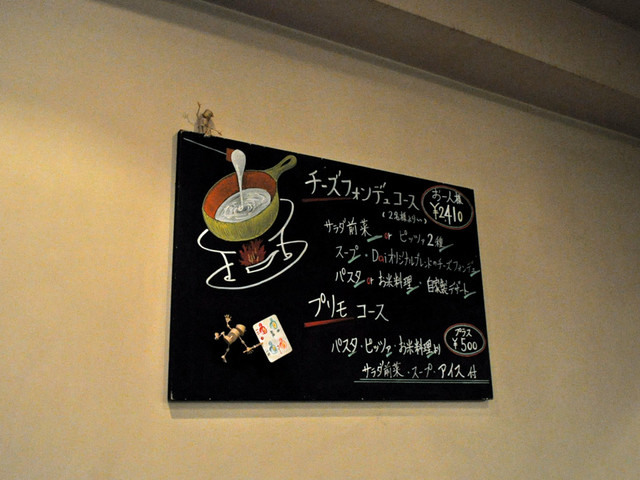 チーズフォンデュコース
お一人様
¥2410
(2名様より〜)
サラダ前菜 or ピッツァ2種
スープ・Daiオリジナルブレンドのチーズフォンデュ
パスタ or お米料理・自家製デザート
プリモコース
プラス
¥500
パスタ・ピッツァ・お米料理より
サラダ前菜・スープ・アイス付